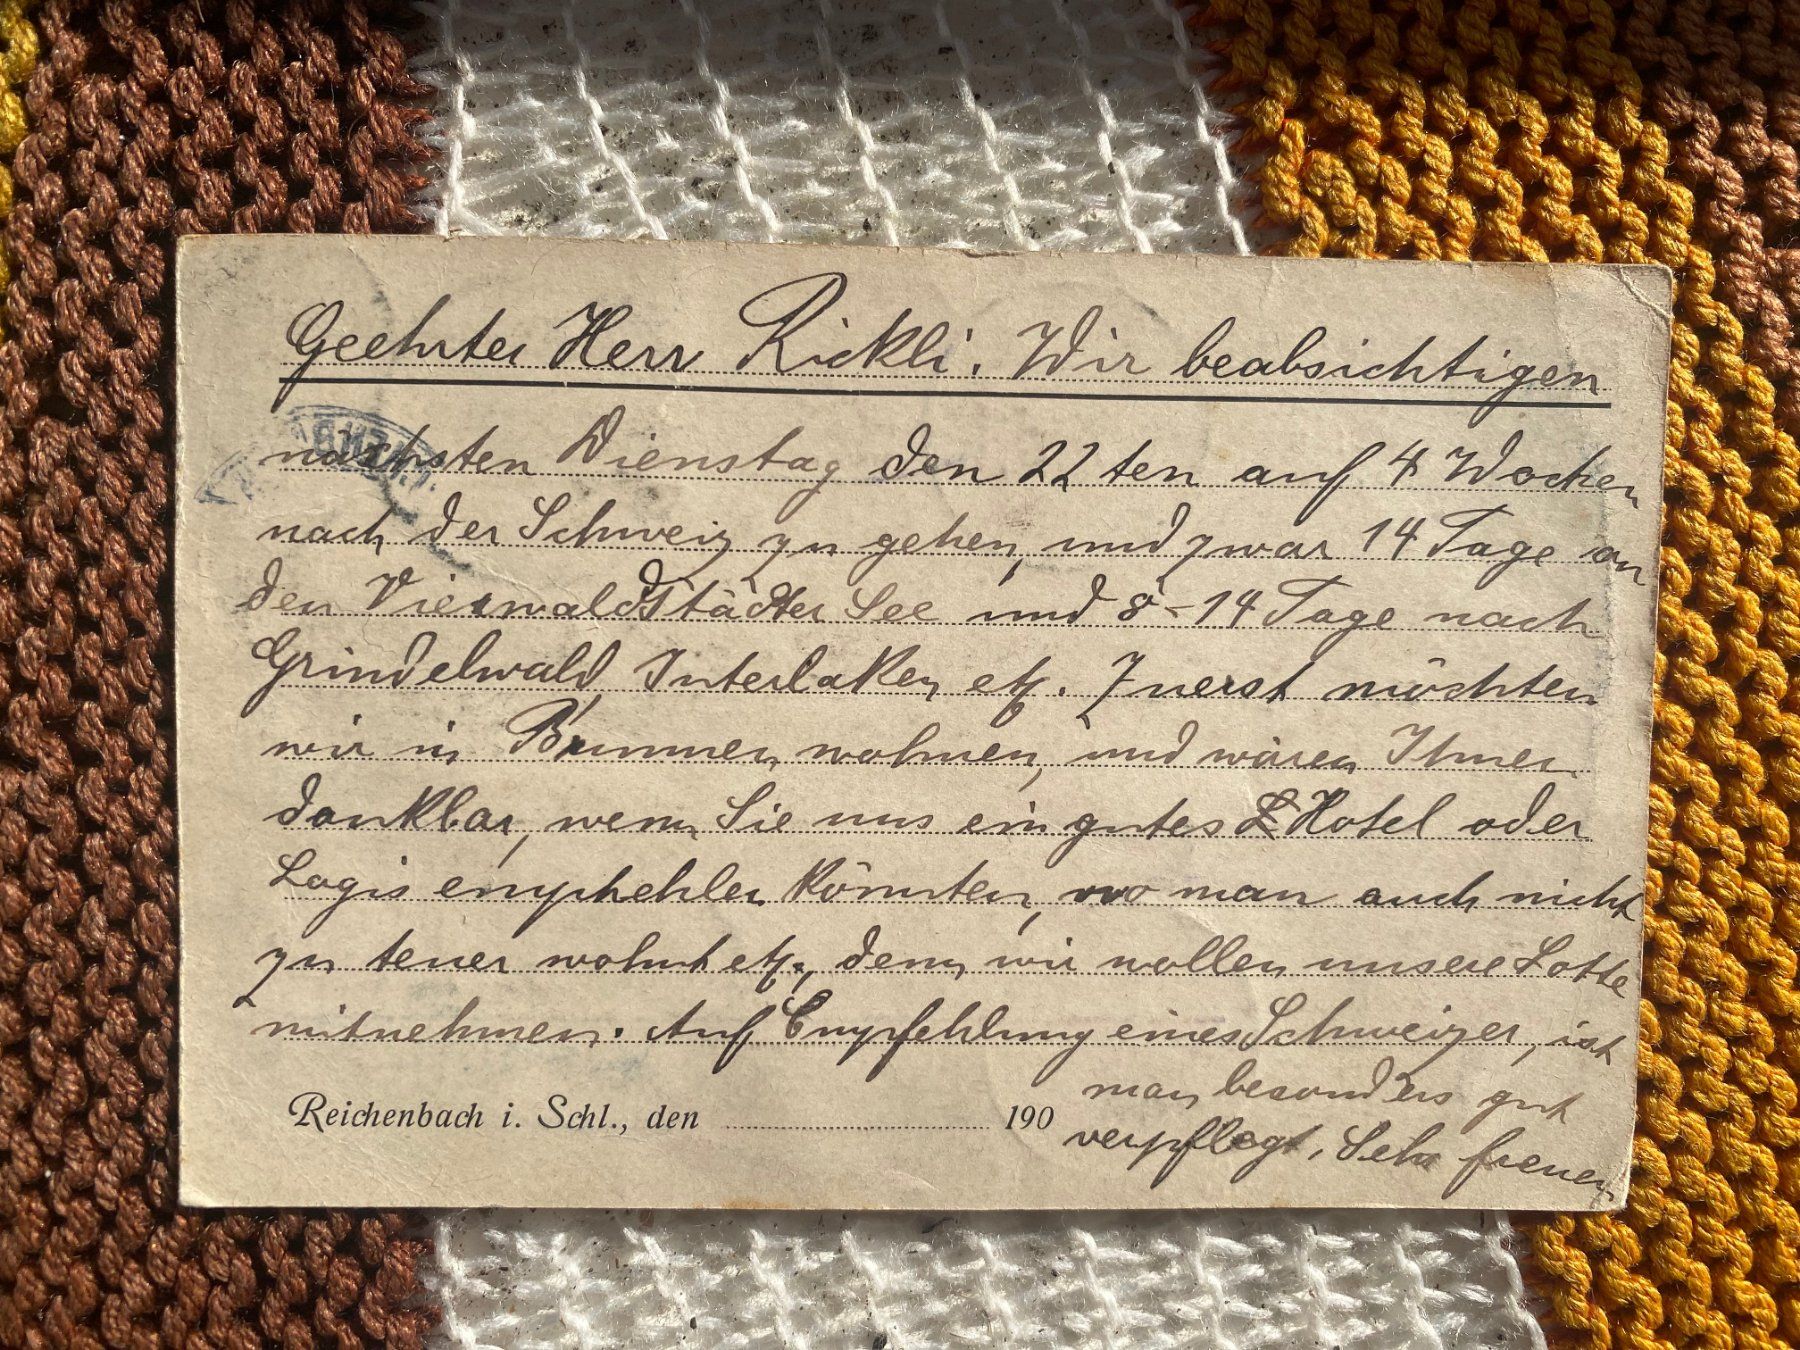 Geehrter Herr Rickli. Wir beabsichtigen
nächsten Dienstag den 22ten auf 4 Wochen
nach der Schweiz zu gehen, und zwar 14 Tage an
den Vierwaldstädter See und 8-14 Tage nach
Grindelwald, Interlaken etz. Zuerst möchten
wir in Brunnen wohnen, und wären Ihnen
dankbar, wenn Sie uns ein gutes Hotel oder
Logis empfehlen könnten, wo man auch nicht
zu teuer wohnt etz., denn wir wollen unsere Lotte
mitnehmen. Auf Empfehlung eines Schweizer, ist
man besonders gut
Reichenbach i. Schl., den 190
verpflegt, Sehr freuen